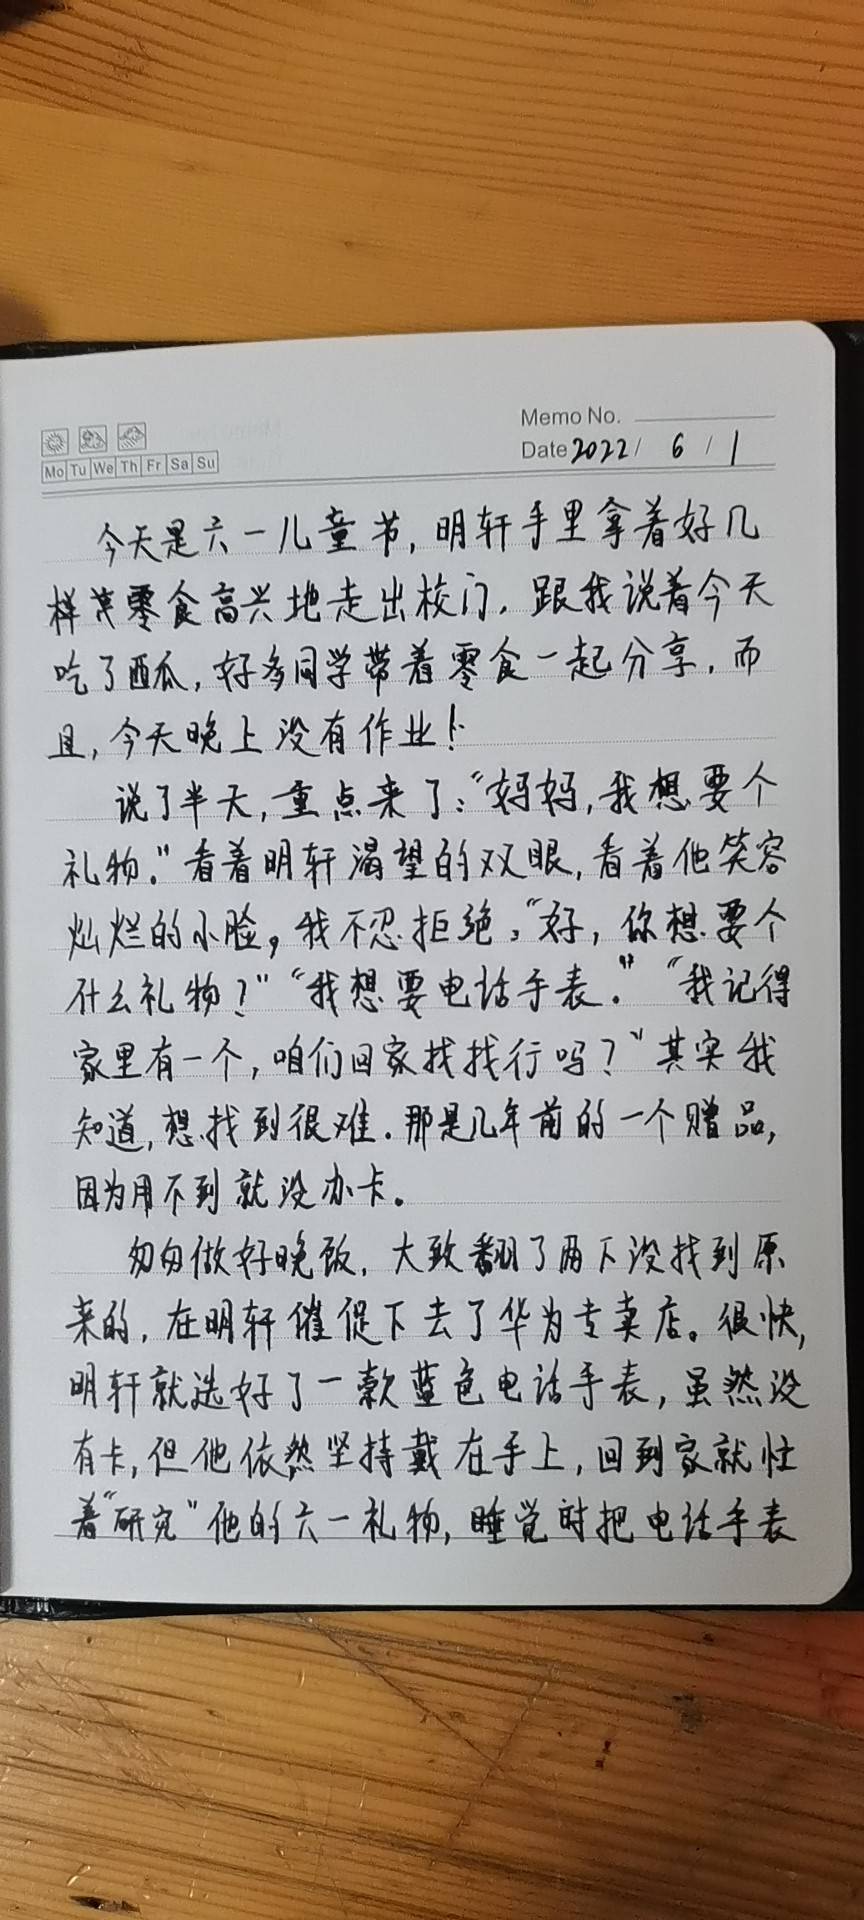 Memo No.
Mo Tu We Th Fr Sa Su
Date 2022/ 6 / 1
今天是六一儿童节,明轩手里拿着好几
样零食高兴地走出校门,跟我说着今天
吃了西瓜,好多同学带着零食一起分享,而
且,今天晚上没有作业!
说了半天,重点来了:“妈妈,我想要个
礼物。”看着明轩渴望的双眼,看着他笑容
灿烂的小脸,我不忍拒绝,“好,你想要个
什么礼物?”“我想要电话手表。”“我记得
家里有一个,咱们回家找找行吗?”其实我
知道,想找到很难.那是几年前的一个赠品,
因为用不到就没办卡。
匆匆做好晚饭,大致翻了两下没找到原
来的,在明轩催促下去了华为专卖店。很快,
明轩就选好了一款蓝色电话手表,虽然没
有卡,但他依然坚持戴在手上,回到家就忙
着“研究”他的六一礼物,睡觉时把电话手表